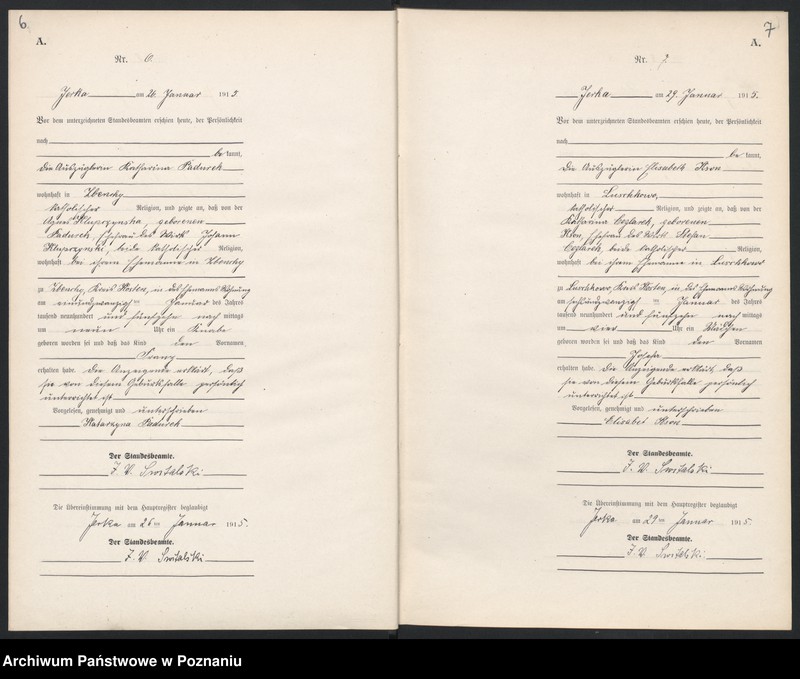 6
A.
Nr. 6.
Jerka am 26. Januar 1915
Vor dem unterzeichneten Standesbeamten erschien heute, der Persönlichkeit
nach
be kannt,
die Auszüglerin Katharina Padurek
wohnhaft in Zbenchy
katholischer Religion, und zeigte an, daß von der
geborenen
Padurek, Ehefrau des Johann
beide katholischer Religion,
wohnhaft bei ihrem Ehemanne in Zbenchy
zu Zbenchy, Kreis Kosten, in des Ehemanns Wohnung
am einundzwanzigsten Januar des Jahres
tausend neunhundert und fünfzehn nach mittags
um neun Uhr ein Knabe
geboren worden sei und daß das Kind den Vornamen
Franz
erhalten habe. Die Anzeigende erklärt, daß
sie von diesem Geburtsfalle persönlich
unterrichtet ist
Vorgelesen, genehmigt und unterschrieben
Katarzyna Padurek
Der Standesbeamte.
J. V. Switalski
Die Übereinstimmung mit dem Hauptregister beglaubigt
Jerka am 26ten Januar 1915.
Der Standesbeamte.
J. V. Switalski
7
A.
Nr. 7.
Jerka am 29. Januar 1915.
Vor dem unterzeichneten Standesbeamten erschien heute, der Persönlichkeit
nach
be kannt,
die Auszüglerin Elisabeth
wohnhaft in Luschkowo,
katholischer Religion, und zeigte an, daß von der
Katharina geborenen
Ehefrau des Stefan
beide katholischer Religion,
wohnhaft bei ihrem Ehemanne in Luschkowo
zu Luschkowo, Kreis Kosten, in des Ehemanns Wohnung
am Januar des Jahres
tausend neunhundert und fünfzehn nach mittags
um vier Uhr ein Mädchen
geboren worden sei und daß das Kind den Vornamen
Josefa
erhalten habe. Die Anzeigende erklärt, daß
sie von diesem Geburtsfalle persönlich
unterrichtet ist
Vorgelesen, genehmigt und unterschrieben
Der Standesbeamte.
J. V. Switalski
Die Übereinstimmung mit dem Hauptregister beglaubigt
Jerka am 29ten Januar 1915.
Der Standesbeamte.
J. V. Switalski
Archiwum Państwowe w Poznaniu